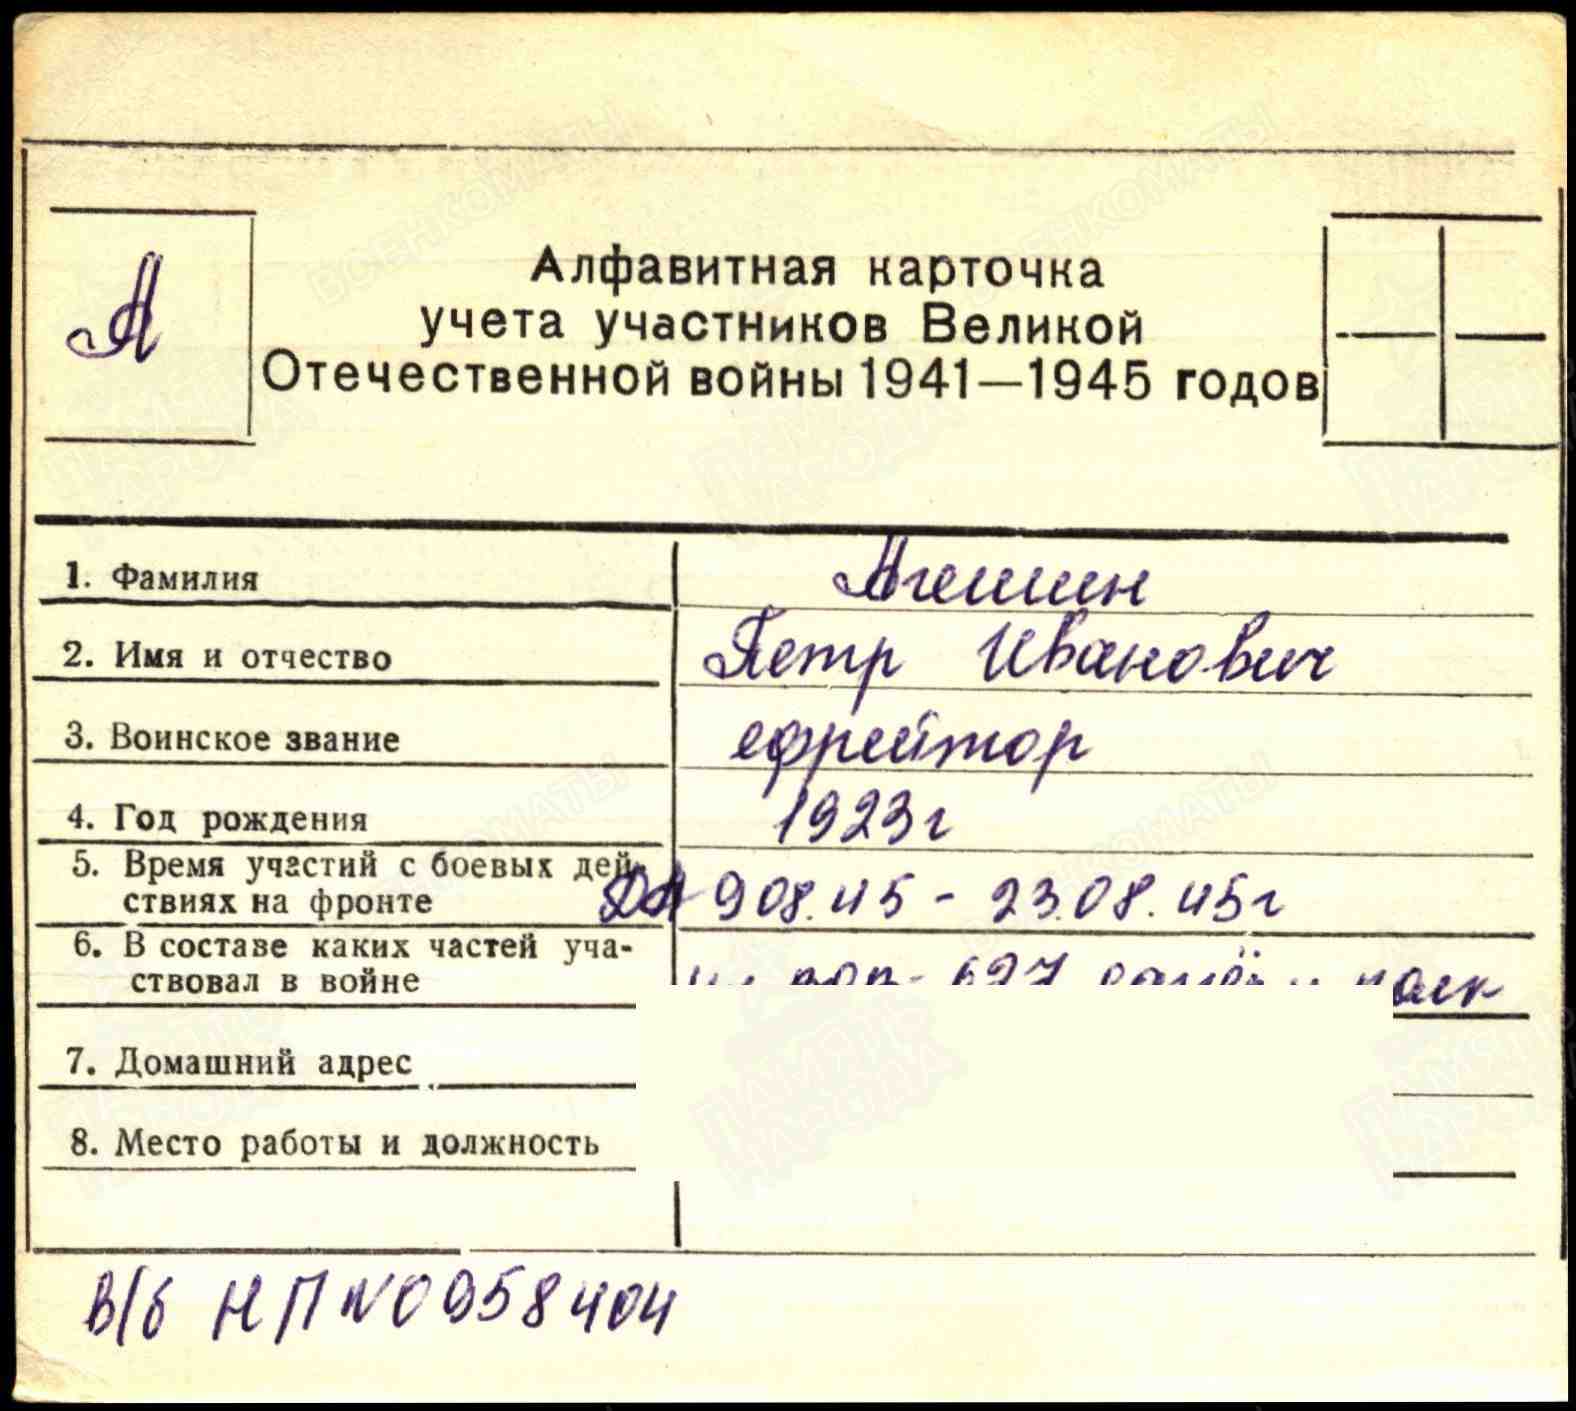 А
Алфавитная карточка
учета участников Великой
Отечественной войны 1941—1945 годов
1. Фамилия Агешин
2. Имя и отчество Петр Иванович
3. Воинское звание ефрейтор
4. Год рождения 1923г
5. Время участий с боевых дей
ствиях на фронте ДА 9 08.45 - 23.08.45г
6. В составе каких частей уча-
ствовал в войне 627 полк
7. Домашний адрес
8. Место работы и должность
В/б НП №0958404
ВОЕНКОМАТЫ
ПАМЯТЬ
НАРОДА